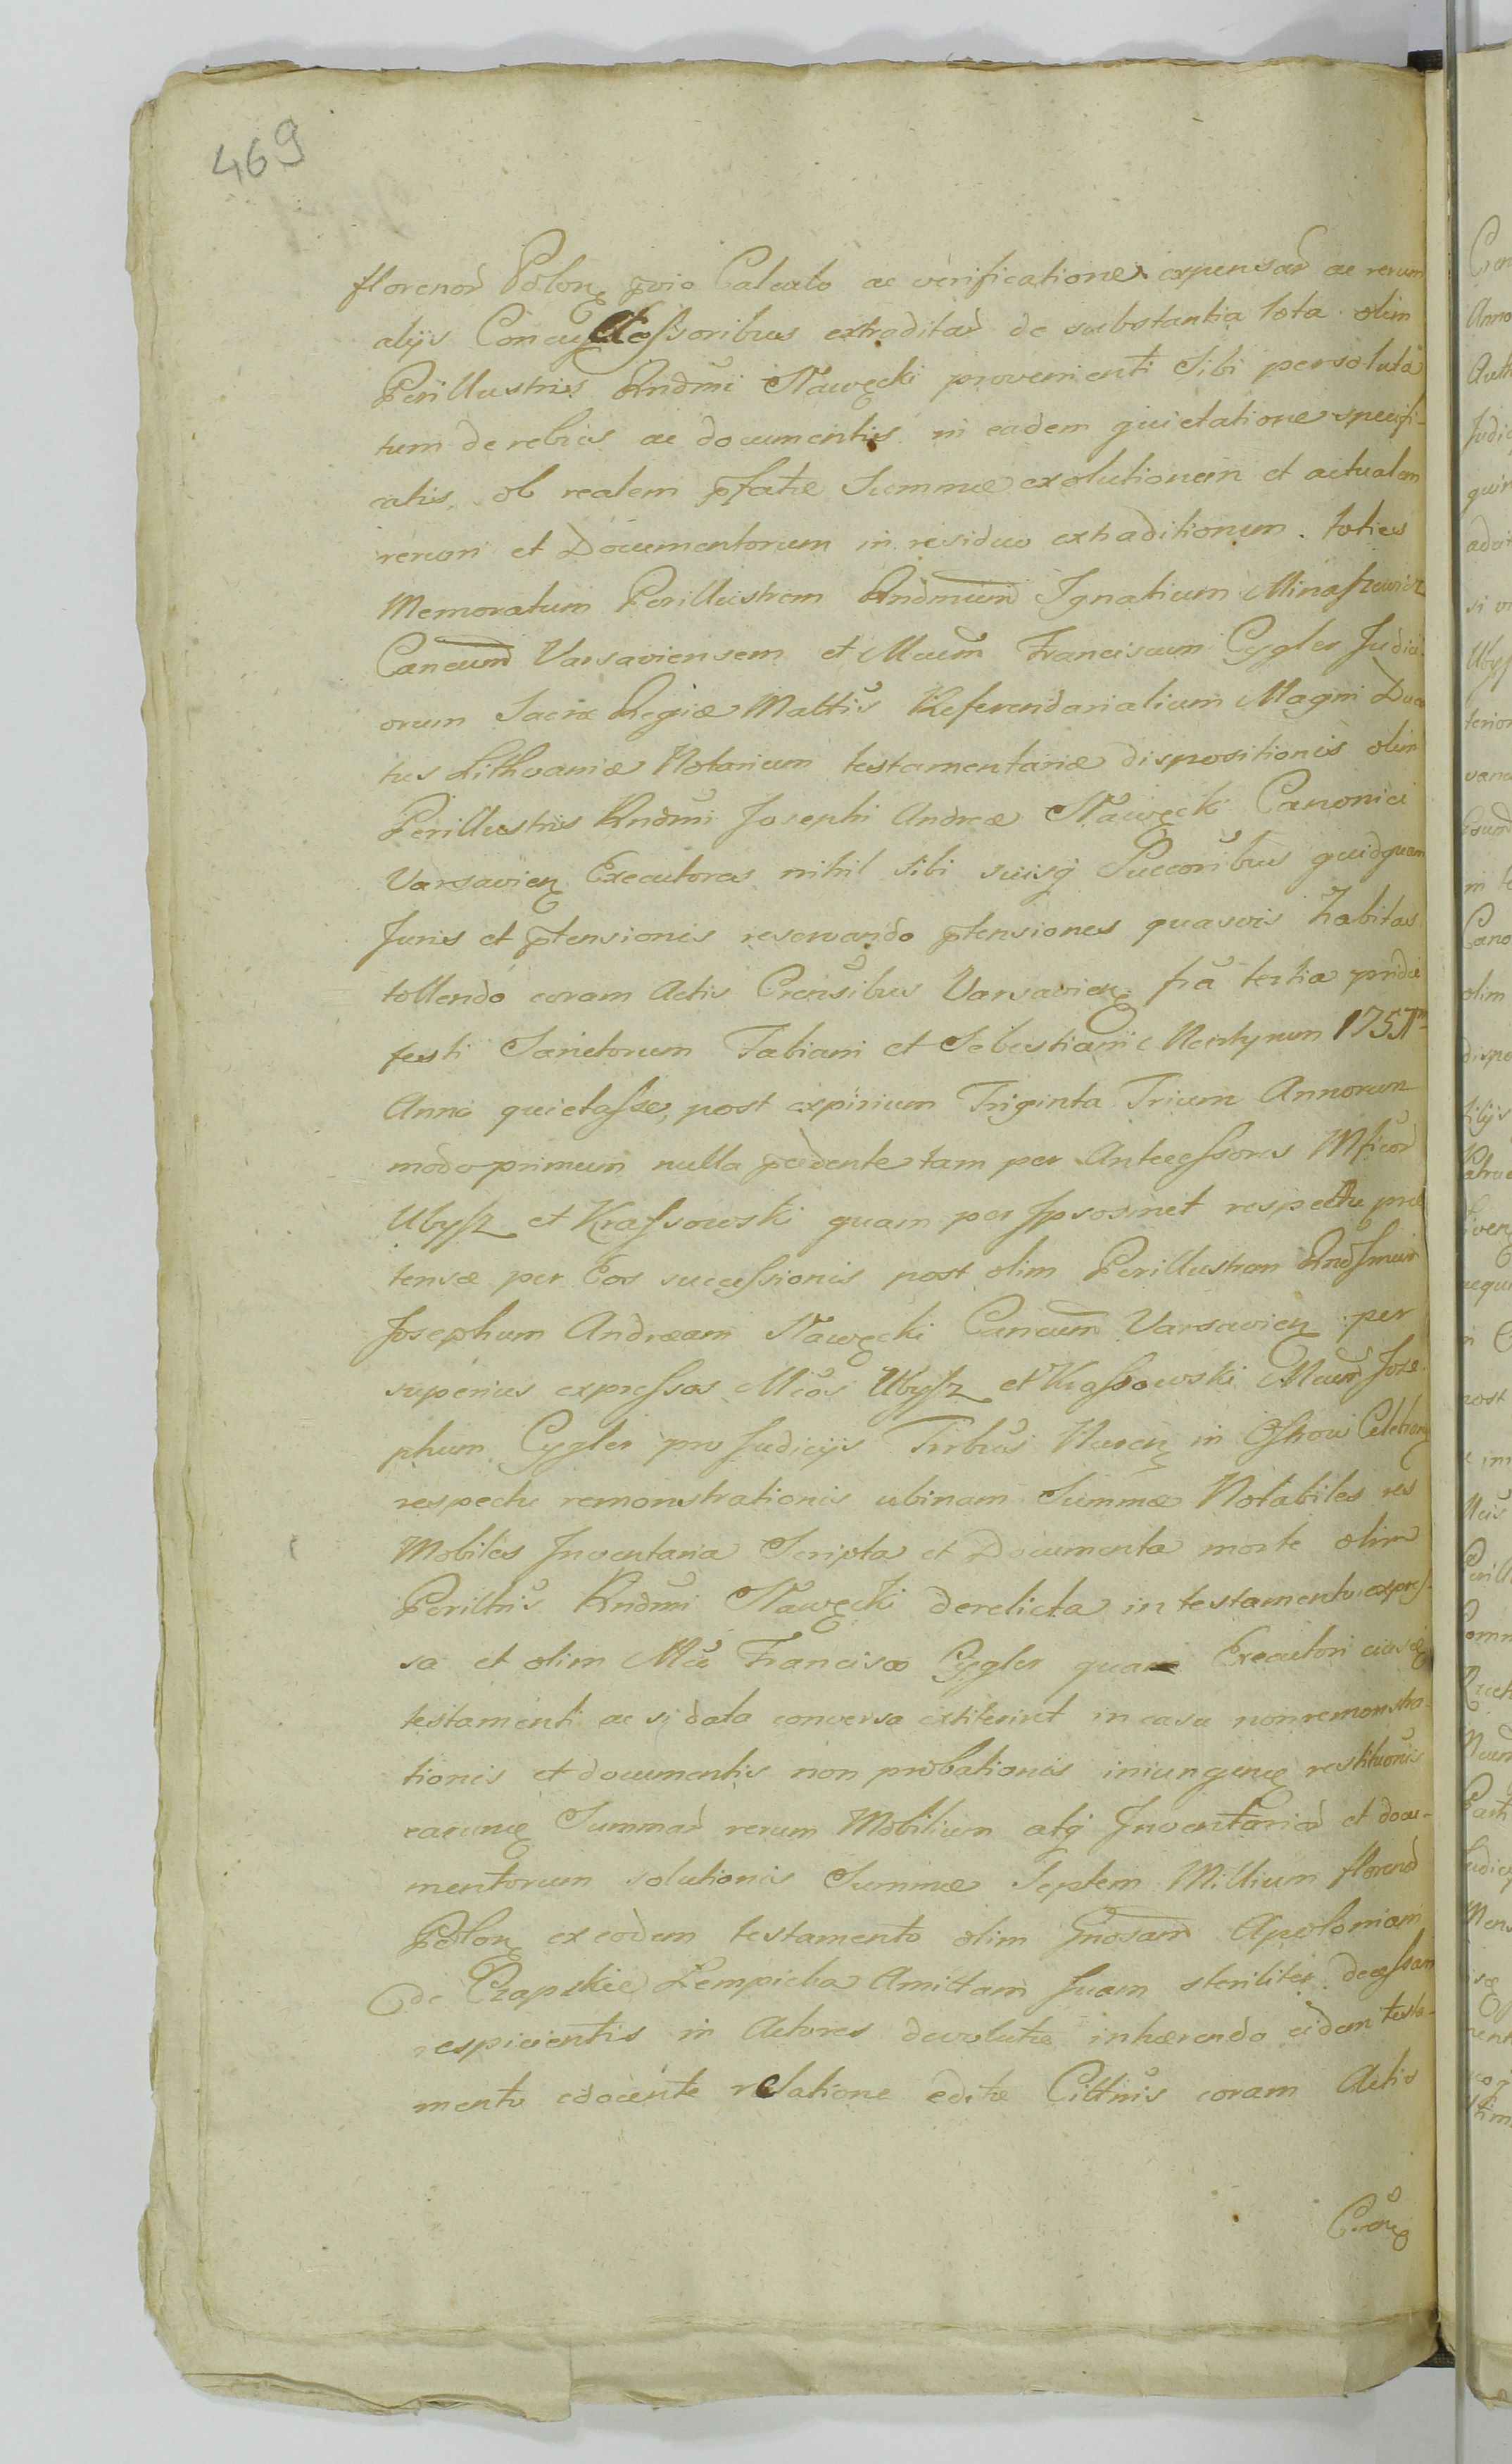 469
florenor̃ Polon̄ p̱vio Calculo ac verificatione expensar̃ ac rerum
alijs Concuſſoribus extraditar̃ de substantia tota olim
Perillustris Rndm̃i Nawęcki provenienti Sibi persoluta
tum de rebus ac documentis in eadem quietatione specifi-
catis, ob realem p̱fatæ Summæ exolutionem et actualem
rerum et Documentorum in residuo extraditionem. toties
Memoratum Perillustrem Rndmum̃ Ignatium Minaſzewicz
Cancum̃ Varsaviensem et Mcum̃ Franciscum Cygler Judici-
orum Sacræ Regiæ Mattis̃ Referendarialium Magni Duca
tus Lithvaniæ Notarium testamentariæ dispositionis olim
Perillustris Rndm̃i Josephi Andreæ Nawęcki Canonici
Varsavien̄ Executores nihil sibi suisq̃ Succoribus̃ quidquam
Juris et p̱tensionis reservando p̱tensiones quasvis habitas
tollendo coram Actis Crensibus̃ Varsavien̄ fr̃a tertia pridie
festi Sanctorum Fabiani et Sebestiani Martyrum 1751mo
Anno quietaſse, post expirium Triginta Trium Annorum
modo primum nulla p̱cedente tam per Anteceſsores Mficor̃
Ubyſz et Kraſsowski quam per Ipsosmet respectu præ
tensæ per Eos succeſsionis post olim Perillustrem Rndſmum
Josephum Andræam Nawęcki Cancum̃ Varsavien̄ per
superius expreſsos Mcos̃ Ubyſz et Kraſsowski Mcum̃ Jose
phum Cygler pro Judicijs Tirbus̃ Nuren̄ in Oſtrow Celebran̄
respectu remonstrationis ubinam Summæ Notabiles res
Mobiles Inventaria Scripta et Documenta morte olim
Periltris̃ Rndm̃i Nawęcki derelicta in testamento expreſ-
sa et olim Mco̊ Francisco Cygler qua Executori eiusd̄
testamenti ac si data conversa extiterint in casu non remonstra-
tionis et documentis non probationis iniungen̄ restituonis̃
earund̄ Summar̃ rerum Mobilium atq̃ Inventarior̃ et docu-
mentorum solutionis Summæ Septem Millium florenor̃
Polon̄ ex eodem testamento olim Gnosam̃ Apoloniam
de Czapskie Lempicka Amittam Suam steriliter deceſsam
respicientis in Actores devolutæ inhærendo eidem testa-
mento edocente relatione editæ Cittnis̃ coram Actis